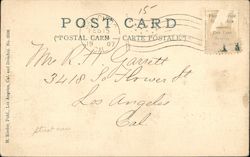 15
POST CARD
(POSTAL CARD — CARTE POSTALE)
19 07
Mrs R. H. Garrett
3418 So Flower St
Los Angeles
Cal.
M. Rieder, Publ., Los Angeles, Cal. and Dresden. No.